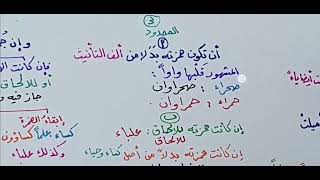 3
الممدود
أ
أن تكون همزته بدلاً من ألف التأنيث
المشهور قلبها واواً :
صحراء : صحراوان
حمراء : حمراوان
ب
إن كانت همزته للإلحاق : علباء
للإلحاق
إن كانت همزته بدلاً من أصل كساء وحياء
وإن
فإن كانت
أو للإلحاق
جاز فيه و
إبقاء الهمزة
كساء علماً كساؤون
وكذلك علباء